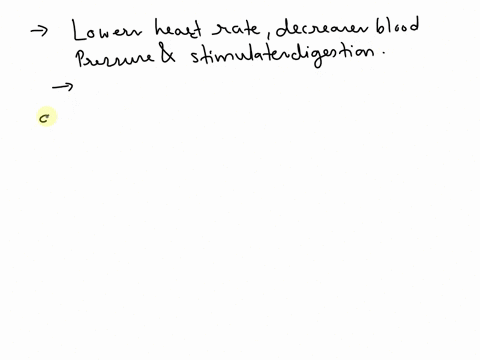 → Lowers heart rate, decreases blood
Pressure & stimulates digestion.
→
c